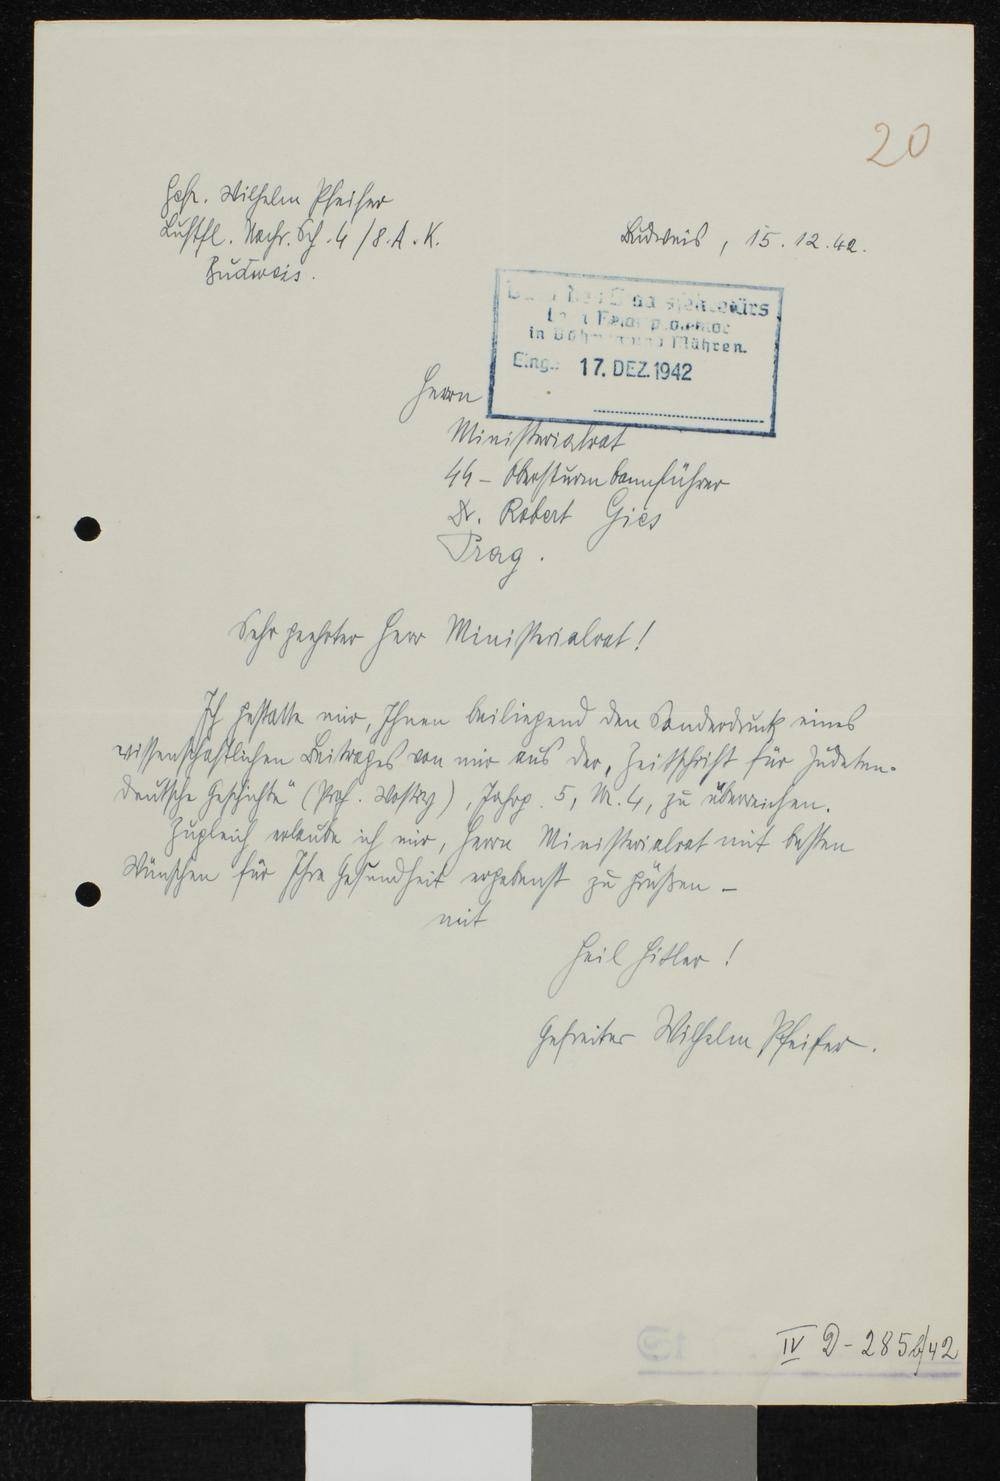 20
Gefr. Wilhelm Pfeifer
Luftfl. Nachr. Sch. 4 / 8. A. K.
Budweis.
Budweis, 15. 12. 42.
in Böhmen und Mähren.
Eing.: 17. DEZ. 1942
Herrn
Ministerialrat
SS - Obersturmbannführer
Dr. Robert Gies
Prag.
Sehr geehrter Herr Ministerialrat!
Ich gestatte mir, Ihnen beiliegend den Sonderdruck eines
wissenschaftlichen Beitrages von mir aus der „Zeitschrift für sudeten-
deutsche Geschichte“ (Prof. Wostry), Jahrg. 5, H. 4, zu überreichen.
Zugleich erlaube ich mir, Herrn Ministerialrat mit besten
Wünschen für Ihre Gesundheit ergebenst zu grüßen –
mit
Heil Hitler!
Gefreiter Wilhelm Pfeifer.
IV D - 285b/42